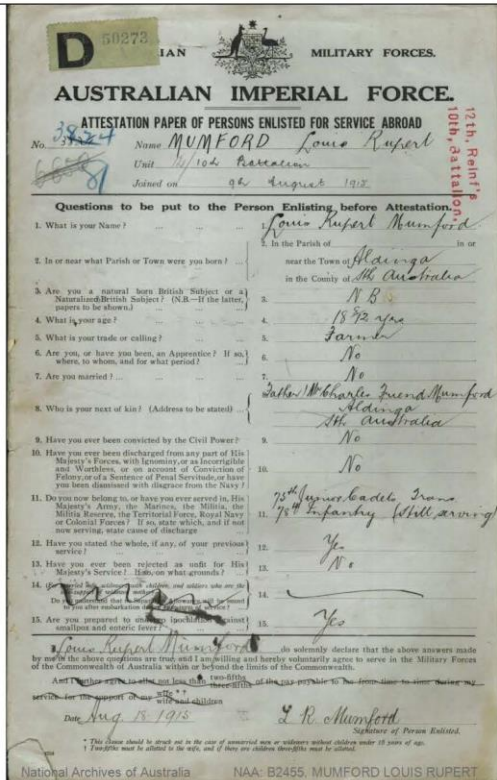 D 50273
ALIAN MILITARY FORCES.
AUSTRALIAN IMPERIAL FORCE.
ATTESTATION PAPER OF PERSONS ENLISTED FOR SERVICE ABROAD
No. 3824 Name MUMFORD Louis Rupert
81 Unit 12/10th Battalion
Joined on 9th August 1915
12th, Reinf's
10th, Battalion,
Questions to be put to the Person Enlisting before Attestation.
1. What is your Name? ... 1. Louis Rupert Mumford
2. In or near what Parish or Town were you born? ... 2. In the Parish of in or
near the Town of Aldinga
in the County of Sth Australia
3. Are you a natural born British Subject or a
Naturalized British Subject? (N.B.—If the latter,
papers to be shown.) 3. N B
4. What is your age? 4. 18 5/12 yrs
5. What is your trade or calling? 5. Farmer
6. Are you, or have you been, an Apprentice? If so,
where, to whom, and for what period? 6. No
7. Are you married? ... 7. No
8. Who is your next of kin? (Address to be stated) ... 8. Father Mr Charles Friend Mumford
Aldinga
Sth Australia
9. Have you ever been convicted by the Civil Power? 9. No
10. Have you ever been discharged from any part of His
Majesty's Forces, with Ignominy, or as Incorrigible
and Worthless, or on account of Conviction of
Felony, or of a Sentence of Penal Servitude, or have
you been dismissed with disgrace from the Navy? 10. No
11. Do you now belong to, or have you ever served in, His
Majesty's Army, the Marines, the Militia, the
Militia Reserve, the Territorial Force, Royal Navy
or Colonial Forces? If so, state which, and if not
now serving, state cause of discharge 11. 75th Junior Cadets Trans
78th Infantry (Still serving)
12. Have you stated the whole, if any, of your previous
service? 12. Yes
13. Have you ever been rejected as unfit for His
Majesty's Service? If so, on what grounds? 13. No
14. 14.
15. Are you prepared to undergo inoculation against
smallpox and enteric fever? 15. Yes
I Louis Rupert Mumford do solemnly declare that the above answers made
by me in the above questions are true, and I am willing and hereby voluntarily agree to serve in the Military Forces
of the Commonwealth of Australia within or beyond the limits of the Commonwealth.
And I further agree to allot not less than two-fifths
three-fifths of the pay payable to me from time to time during my
service for the support of my wife
wife and children
Date Aug 18 1915 L R Mumford
Signature of Person Enlisted.
* This clause should be struck out in the case of unmarried men or widowers without children under 18 years of age.
† Two-fifths must be allotted to the wife, and if there are children three-fifths must be allotted.
National Archives of Australia NAA: B2455, MUMFORD LOUIS RUPERT